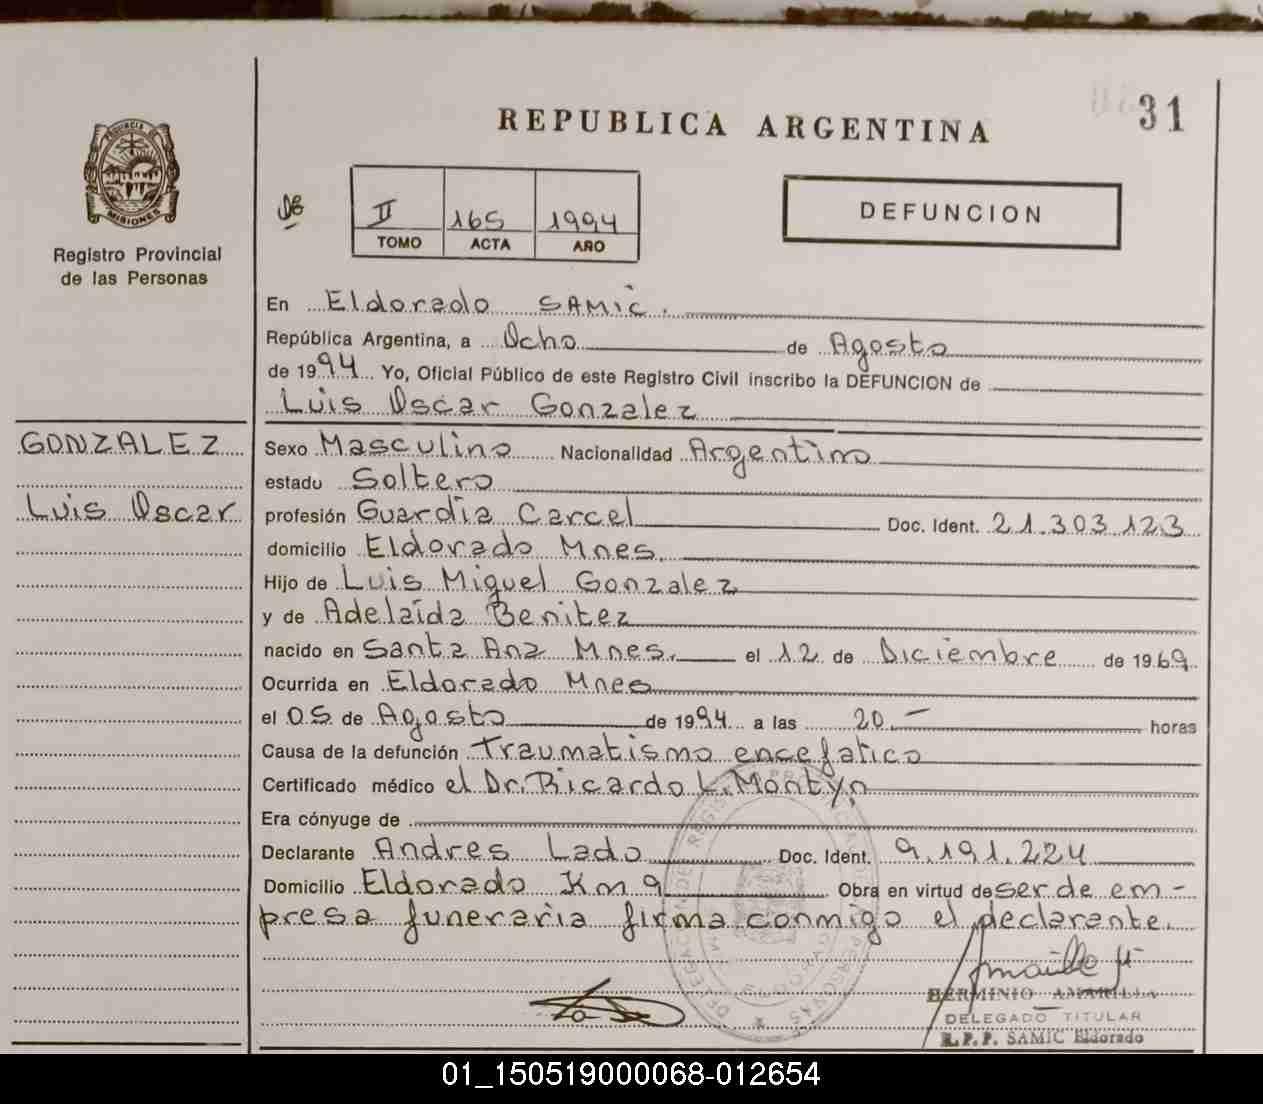 31
REPUBLICA ARGENTINA
PROVINCIA DE
MISIONES
Registro Provincial
de las Personas
II 165 1994
TOMO ACTA AÑO
DEFUNCION
En Eldorado SAMIC.
República Argentina, a Ocho de Agosto
de 1994 Yo, Oficial Público de este Registro Civil inscribo la DEFUNCION de
Luis Oscar Gonzalez
GONZALEZ
Luis Oscar
Sexo Masculino Nacionalidad Argentino
estado Soltero
profesión Guardia Carcel Doc. Ident. 21.303.123
domicilio Eldorado Mnes.
Hijo de Luis Miguel Gonzalez
y de Adelaida Benitez
nacido en Santa Ana Mnes. el 12 de Diciembre de 1969
Ocurrida en Eldorado Mnes
el 05 de Agosto de 1994 a las 20.- horas
Causa de la defunción Traumatismo encefatico
Certificado médico el Dr. Ricardo L. Montyn
Era cónyuge de
Declarante Andres Lado Doc. Ident. 9.191.224
Domicilio Eldorado Km 9 Obra en virtud de ser de em-
presa funeraria firma conmigo el declarante.
HERMINIO AMARILLA
DELEGADO TITULAR
R.P.P. SAMIC Eldorado
01_150519000068-012654